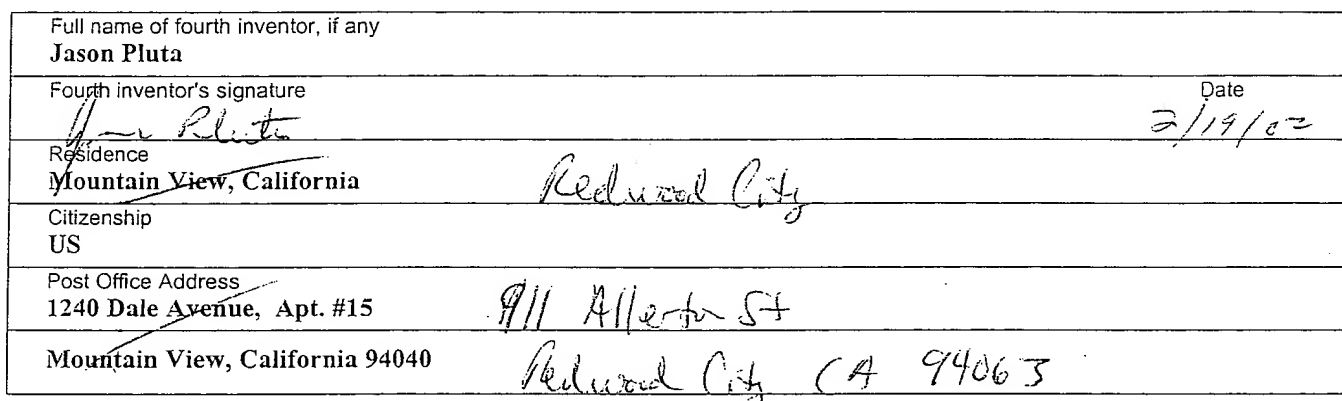 Full name of fourth inventor, if any
Jason Pluta
Fourth inventor's signature Date
Pluta 2/19/02
Residence
Mountain View, California Redwood City
Citizenship
US
Post Office Address
1240 Dale Avenue, Apt. #15 Allerton St
Mountain View, California 94040 Redwood City CA 94063